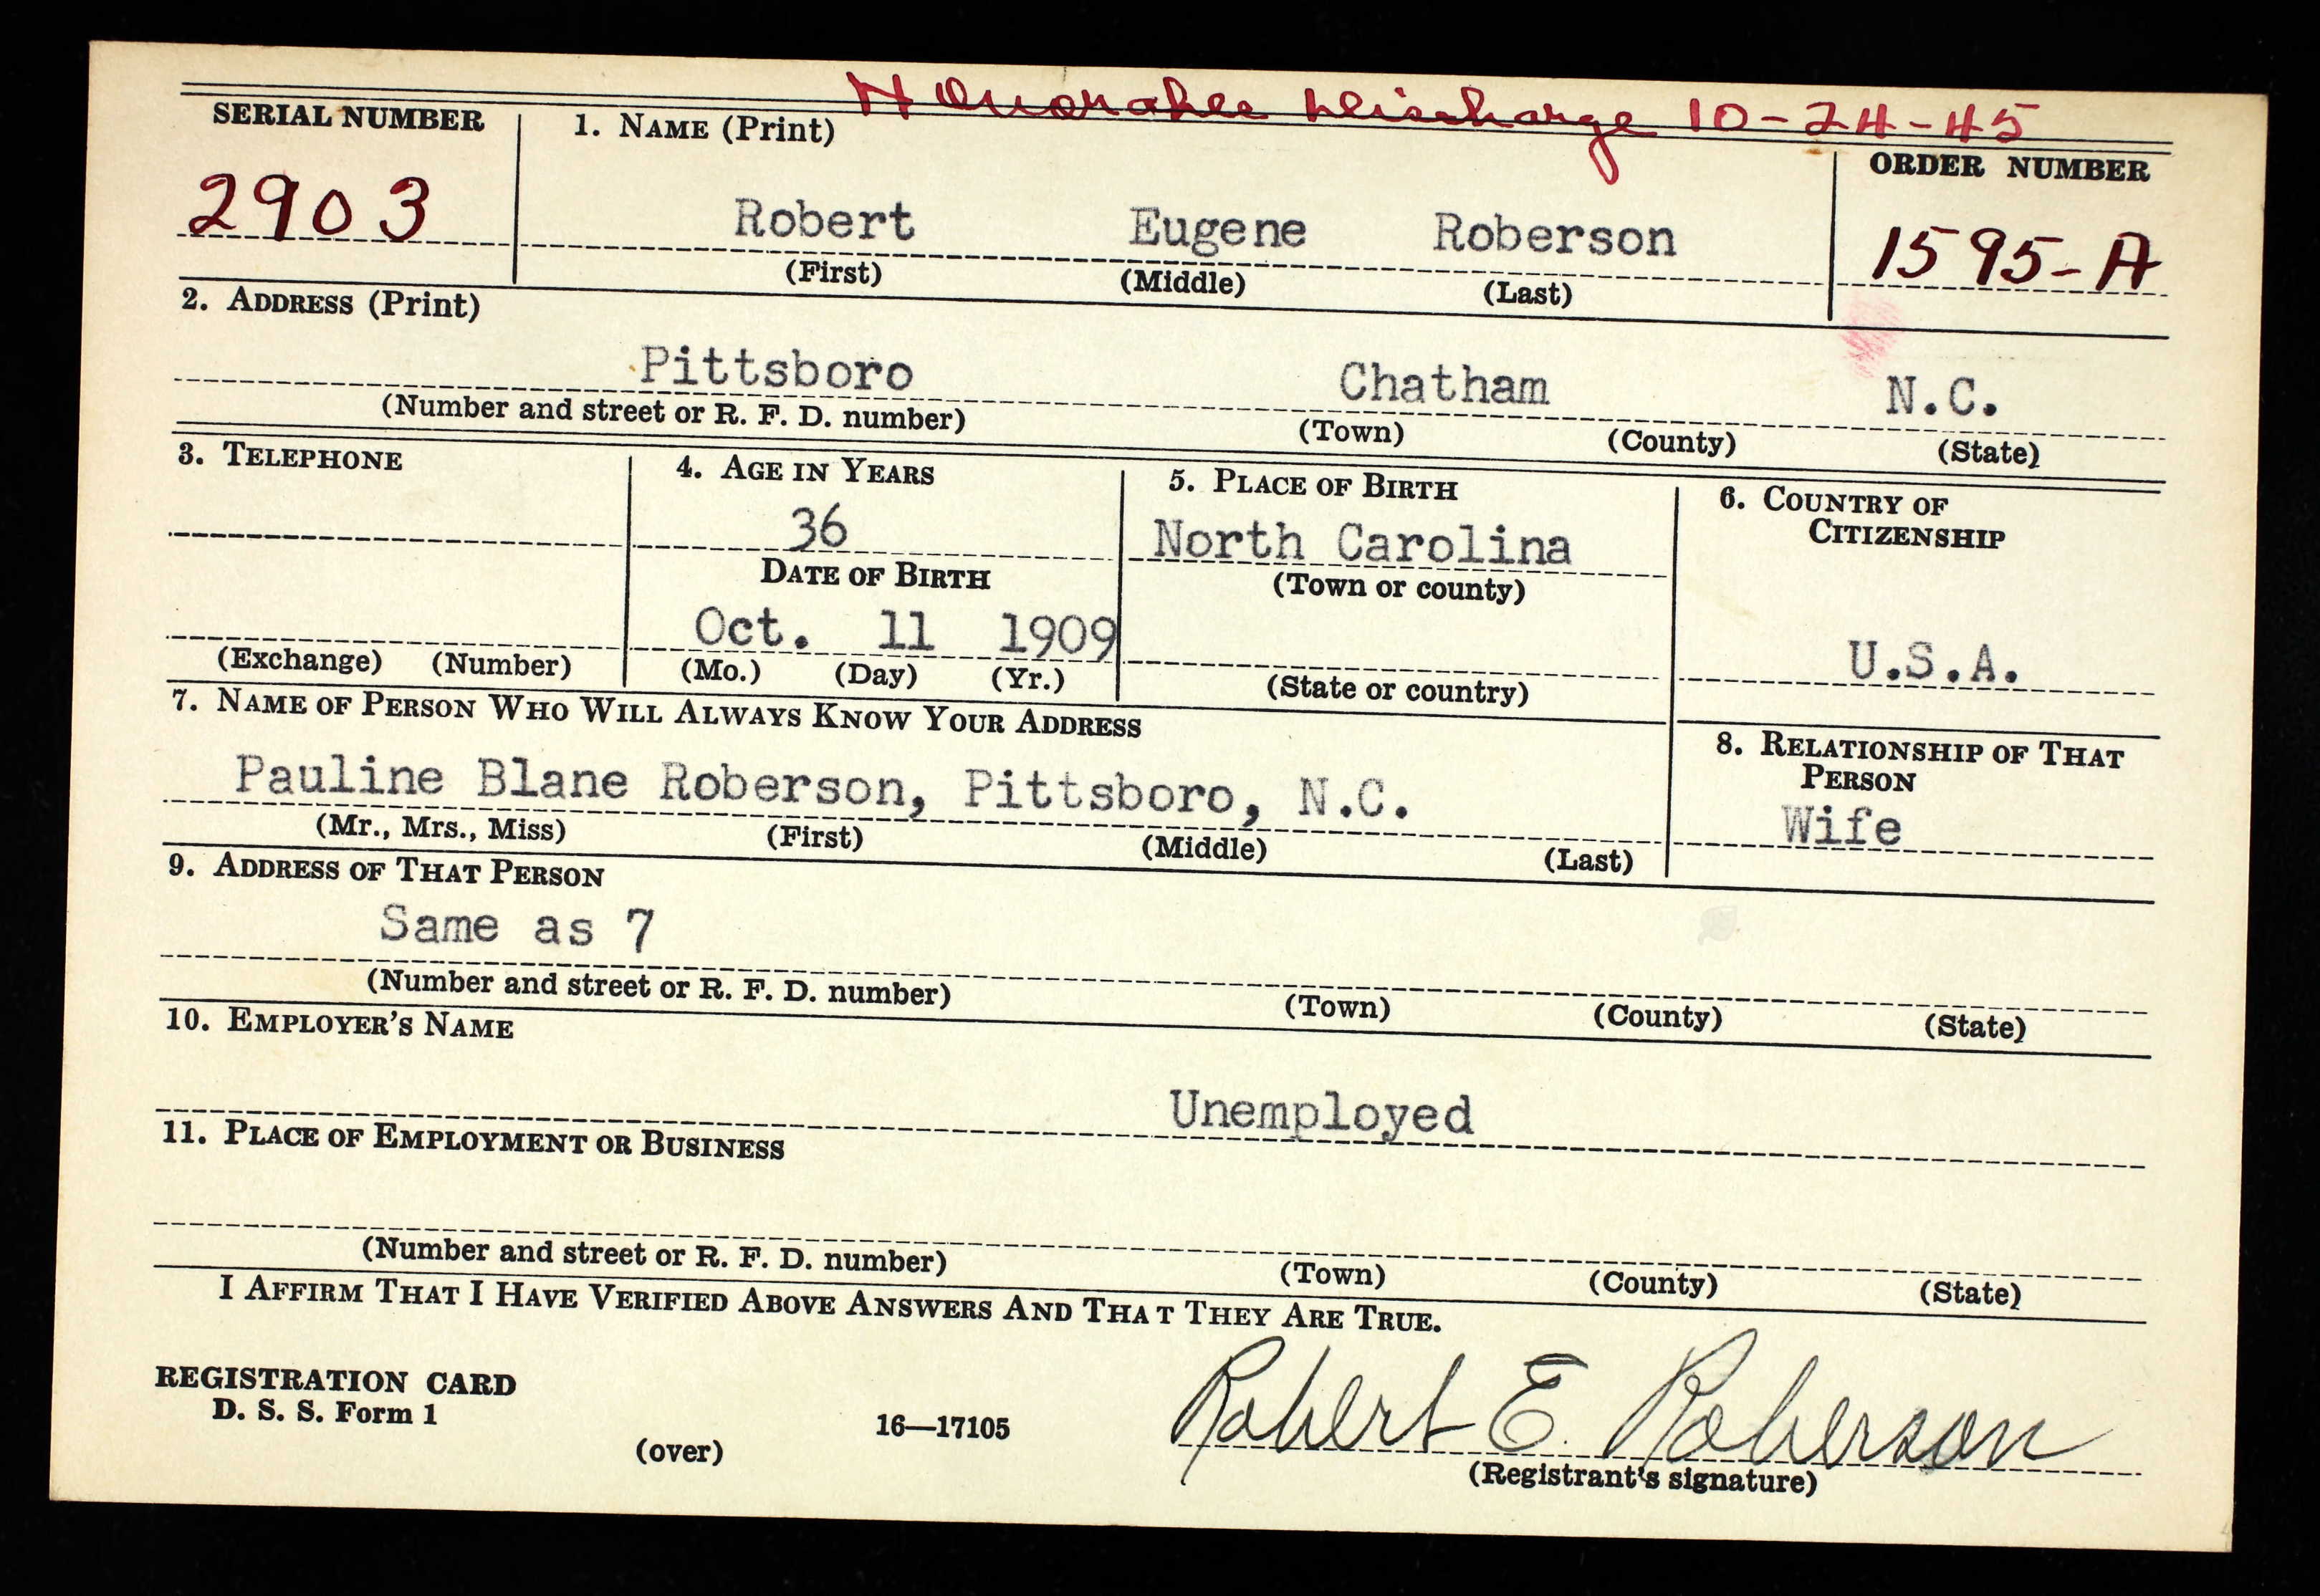 Honorable Discharge 10-24-45
SERIAL NUMBER 1. NAME (Print) ORDER NUMBER
2903 Robert Eugene Roberson 1595-A
(First) (Middle) (Last)
2. ADDRESS (Print)
Pittsboro Chatham N.C.
(Number and street or R. F. D. number) (Town) (County) (State)
3. TELEPHONE 4. AGE IN YEARS 5. PLACE OF BIRTH 6. COUNTRY OF
CITIZENSHIP
36 North Carolina
DATE OF BIRTH (Town or county)
Oct. 11 1909 U.S.A.
(Exchange) (Number) (Mo.) (Day) (Yr.) (State or country)
7. NAME OF PERSON WHO WILL ALWAYS KNOW YOUR ADDRESS 8. RELATIONSHIP OF THAT
PERSON
Pauline Blane Roberson, Pittsboro, N.C. Wife
(Mr., Mrs., Miss) (First) (Middle) (Last)
9. ADDRESS OF THAT PERSON
Same as 7
(Number and street or R. F. D. number) (Town) (County) (State)
10. EMPLOYER'S NAME
Unemployed
11. PLACE OF EMPLOYMENT OR BUSINESS
(Number and street or R. F. D. number) (Town) (County) (State)
I AFFIRM THAT I HAVE VERIFIED ABOVE ANSWERS AND THAT THEY ARE TRUE.
REGISTRATION CARD
D. S. S. Form 1 16—17105 Robert E. Roberson
(over) (Registrant's signature)